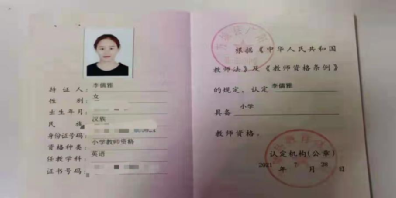 持证人：李倩雅
性别：女
出生年月：
民族：汉族
身份证号码：
资格种类：小学教师资格
任教学科：英语
证书号码：
根据《中华人民共和国
教师法》及《教师资格条例》
的规定，认定李倩雅
具备小学
教师资格。
认定机构(公章)
年7月20日